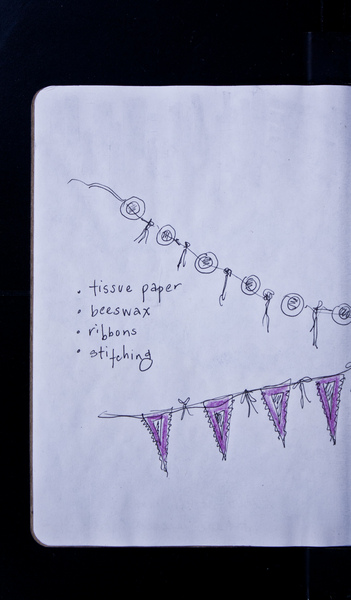 • tissue paper
• beeswax
• ribbons
• stitching